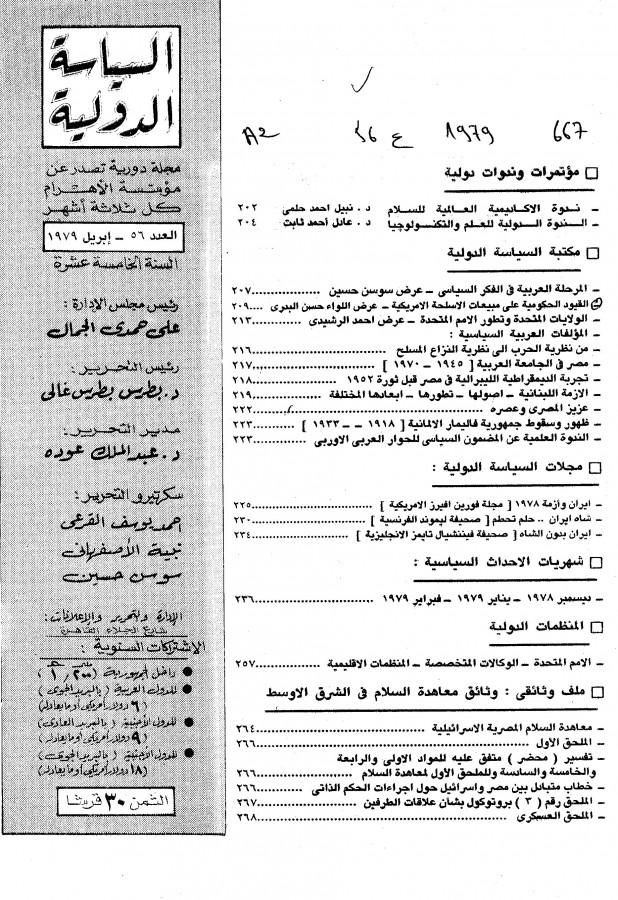 السياسة
الدولية
مجلة دورية تصدر عن
مؤسسة الأهرام
كل ثلاثة أشهر
العدد ٥٦ – إبريل ١٩٧٩
السنة الخامسة عشرة
رئيس مجلس الإدارة :
على حمدى الجمال
رئيس التحرير :
د. بطرس بطرس غالى
مدير التحرير :
د. عبد الملك عوده
سكرتيرو التحرير :
احمد يوسف القرعى
نبية الأصفهانى
سوسن حسين
الإدارة والتحرير والإعلانات :
شارع الجلاء القاهرة
الإشتراكات السنوية :
داخل الجمهورية ( ١٫٢٠٠ )
للدول العربية ( بالبريد الجوى )
( ٦ دولار أمريكى أو ما يعادله )
للدول الأجنبية ( بالبريد العادى )
( ٩ دولار أمريكى أو ما يعادله )
للدول الأجنبية ( بالبريد الجوى )
( ١٨ دولار أمريكى أو ما يعادله )
الثمن ٣٠ قرشا
667 1979 ع 56 A2
□ مؤتمرات وندوات دولية
– ندوة الاكاديمية العالمية للسلام د . نبيل احمد حلمى ٢٠٢
– الندوة الدولية للعلم والتكنولوجيا د . عادل أحمد ثابت ٢٠٤
□ مكتبة السياسة الدولية
– المرحلة العربية فى الفكر السياسى – عرض سوسن حسين ٢٠٧
القيود الحكومية على مبيعات الاسلحة الامريكية – عرض اللواء حسن البدرى ٢٠٩
– الولايات المتحدة وتطور الامم المتحدة – عرض احمد الرشيدى ٢١٣
– المؤلفات العربية السياسية :
– من نظرية الحرب الى نظرية النزاع المسلح ٢١٦
– مصر فى الجامعة العربية [ ١٩٤٥ – ١٩٧٠ ] ٢١٧
– تجربة الديمقراطية الليبرالية فى مصر قبل ثورة ١٩٥٢ ٢١٨
– الازمة اللبنانية – اصولها – تطورها – ابعادها المختلفة ٢١٩
– عزيز المصرى وعصره ٢٢٢
– ظهور وسقوط جمهورية فاليمار الالمانية [ ١٩١٨ – – ١٩٣٣ ] ٢٢٣
– الندوة العلمية عن المضمون السياسى للحوار العربى الاوربى ٢٢٣
□ مجلات السياسة الدولية :
– ايران وازمة ١٩٧٨ [ مجلة فورين افيرز الامريكية ] ٢٢٥
– شاه ايران .. حلم تحطم [ صحيفة ليموند الفرنسية ] ٢٣٠
– ايران بدون الشاه [ صحيفة فيننشيال تايمز الانجليزية ] ٢٣٤
□ شهريات الاحداث السياسية :
– ديسمبر ١٩٧٨ – يناير ١٩٧٩ – فبراير ١٩٧٩ ٢٣٦
□ المنظمات الدولية
– الامم المتحدة – الوكالات المتخصصة – المنظمات الاقليمية ٢٥٧
□ ملف وثائقى : وثائق معاهدة السلام فى الشرق الاوسط
– معاهدة السلام المصرية الاسرائيلية ٢٦٤
– الملحق الاول ٢٦٦
– تفسير ( محضر ) متفق عليه للمواد الاولى والرابعة
والخامسة والسادسة وللملحق الاول لمعاهدة السلام ٢٦٦
– خطاب متبادل بين مصر واسرائيل حول اجراءات الحكم الذاتى ٢٦٦
– الملحق رقم ( ٣ ) بروتوكول بشان علاقات الطرفين ٢٦٧
– الملحق العسكرى ٢٦٨